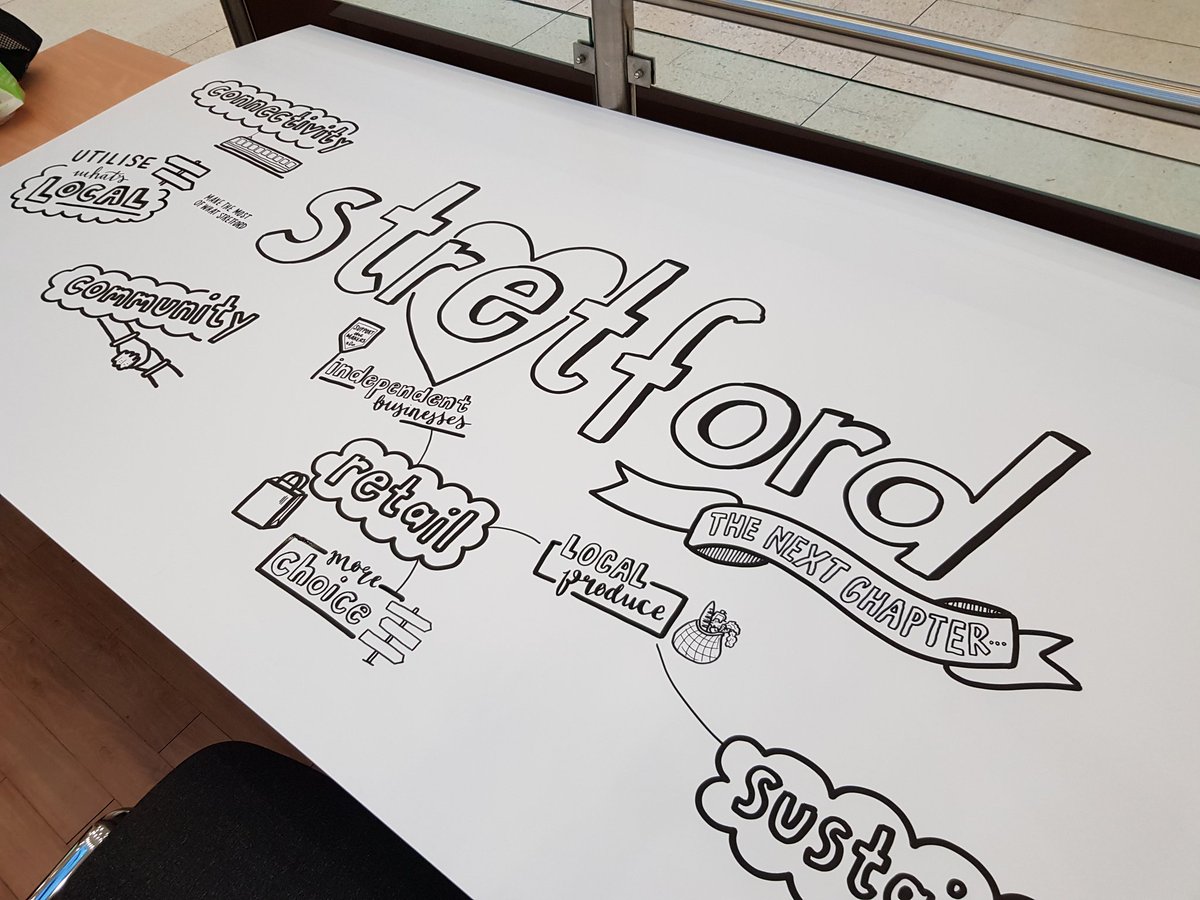 connectivity
UTILISE
what's
LOCAL
MAKE THE MOST
OF WHAT STRETFORD
stretford
community
SUPPORT
MAKERS
independent
businesses
retail
more
choice
LOCAL
produce
THE NEXT CHAPTER...
Sustai